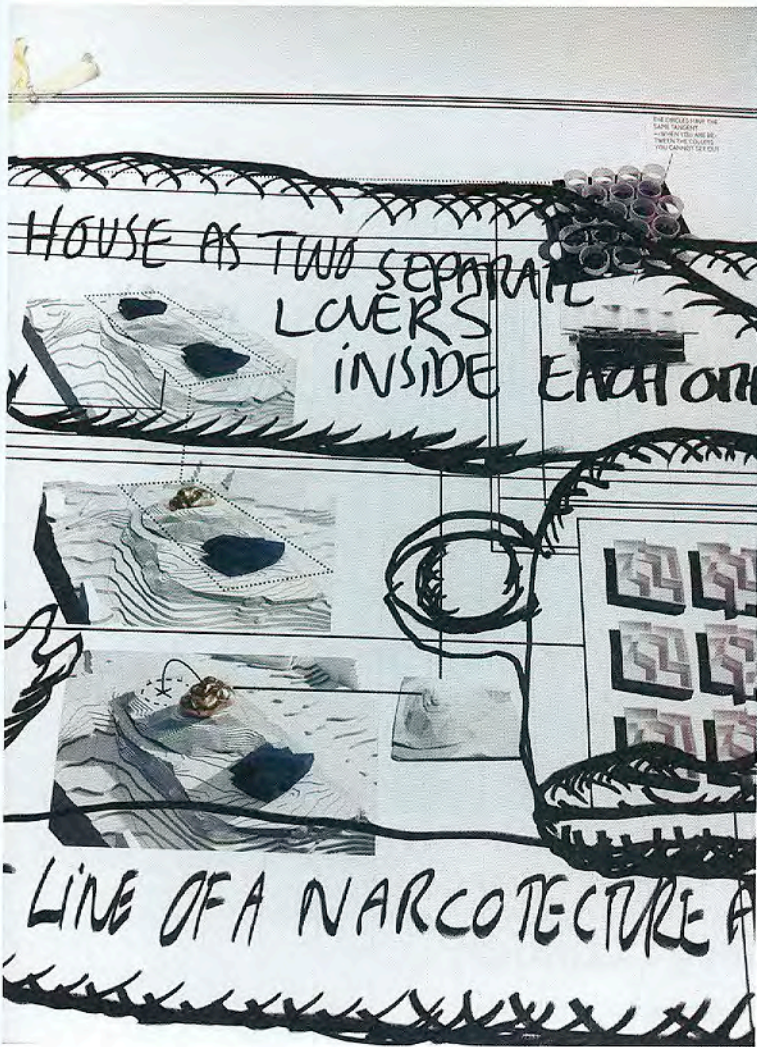 THE CIRCLES HAVE THE
SAME TANGENT
—WHEN YOU ARE BE-
TWEEN THE COLUMS
YOU CANNOT SEE OUT
HOUSE AS TWO SEPARATE
LOVERS
INSIDE EACH OTH
- LINE OF A NARCOTECTURE A